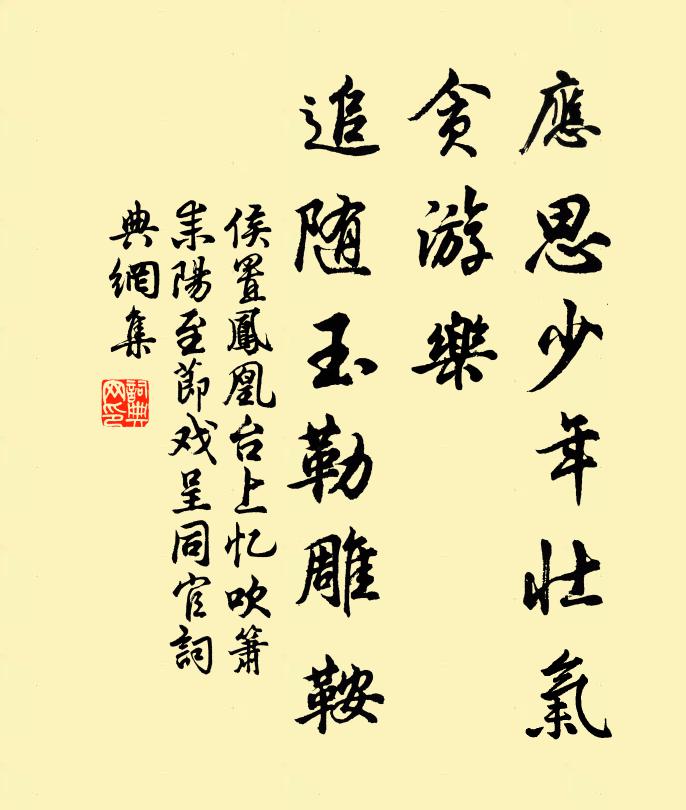 應思少年壯氣
貪游樂
追随玉勒雕鞍
侯置鳳凰台上忆吹簫
耒陽至節戏呈同官詞
典網集
詞典网印